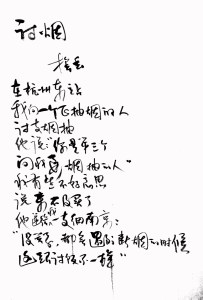 讨烟
在杭州东站
我向一个正抽烟的人
讨支烟抽
他说："你是第三个
问我要烟抽的人"
我有些不好意思
说来不及买了
他递给我一支细南京：
"没关系，都会遇到断烟的时候
这跟讨饭不一样"